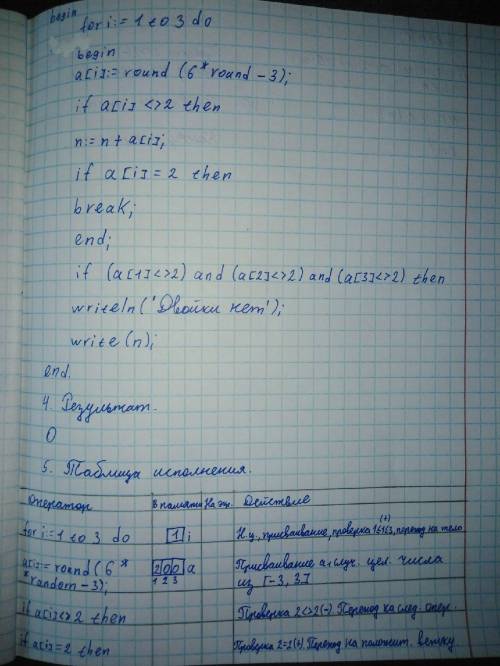 begin
for i:= 1 to 3 do
begin
a[i]:= round (6*round - 3);
if a[i] <>2 then
n:= n + a[i];
if a[i] = 2 then
break;
end;
if (a[1]<>2) and (a[2]<>2) and (a[3]<>2) then
writeln('Двойки нет');
write (n);
end.
4. Результат.
0
5. Таблица исполнения.
Оператор В памяти На эк. Действие
for i:= 1 to 3 do 1 i Н.ц., присваивание, проверка 1≤1≤3, переход на тело
(+)
a[i]:= round (6* 2 0 0 a Присваивание a случ. цел. числа
*random - 3); 1 2 3 из [-3, 3]
if a[i]<>2 then Проверка 2<>2(-). Переход на след. опер.
if a[i]=2 then Проверка 2=2(+). Переход на положит. ветку.